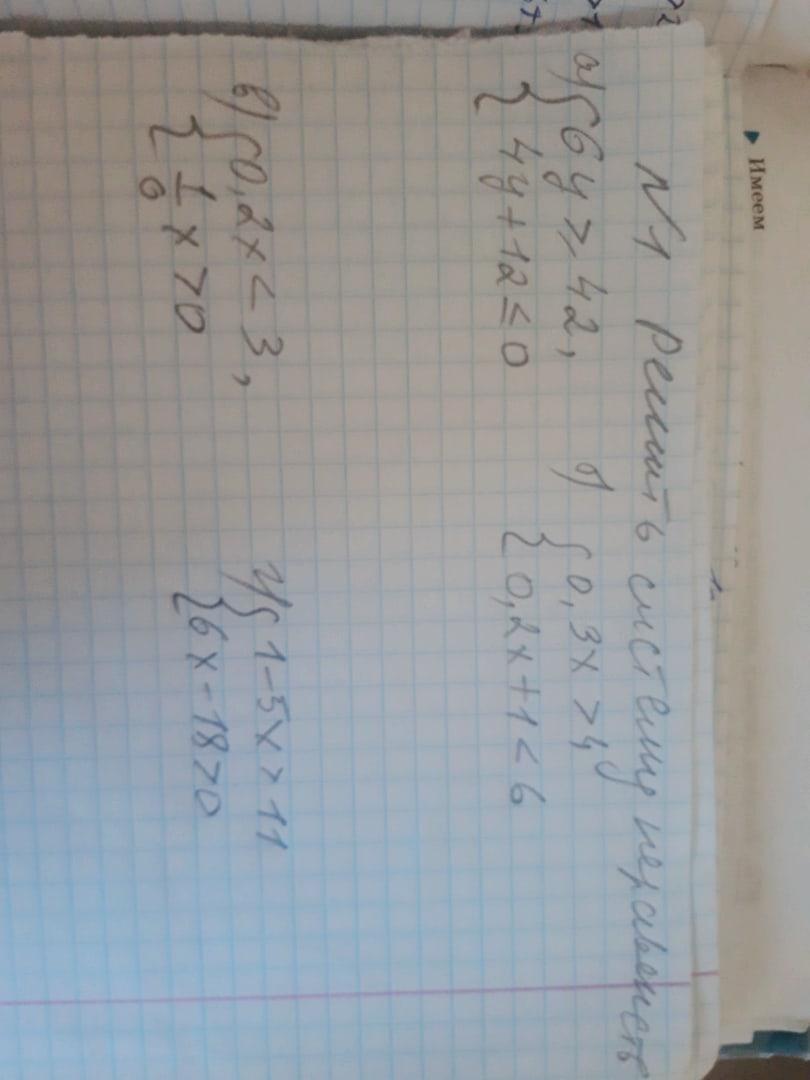 Имеем
N1 Решить систему неравенств
а) { 6y ≥ 42,
4y + 12 ≤ 0
б) { 0,3x > 4,
0,2x + 1 < 6
в) { 0,2x < 3,
1/6 x > 0
г) { 1 - 5x > 11
6x - 18 > 0